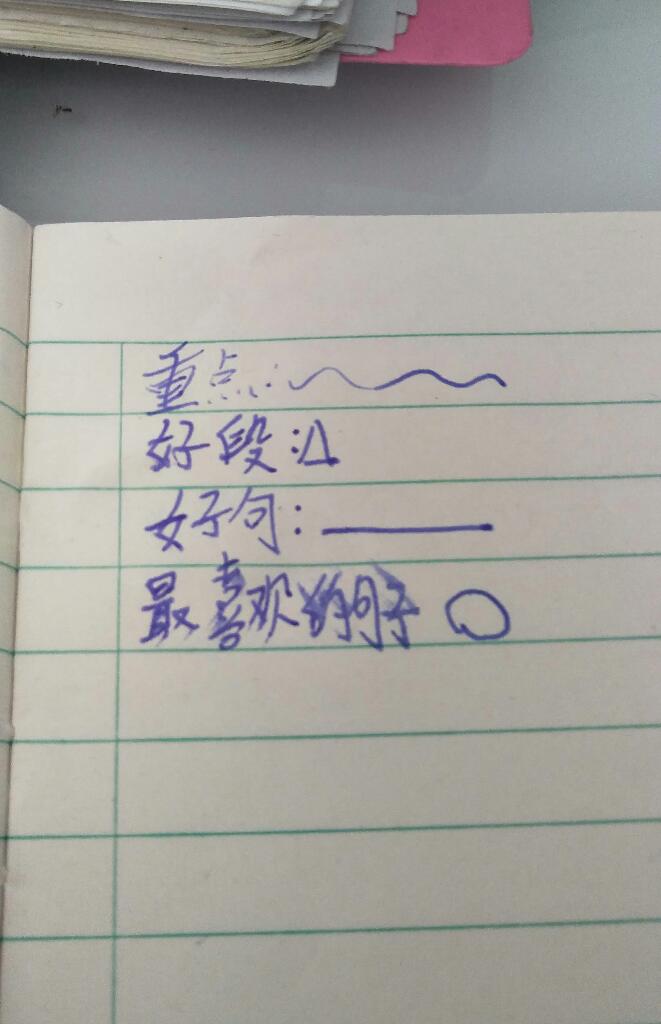 重点:
好段:△
好句:——
最喜欢的句子 ○